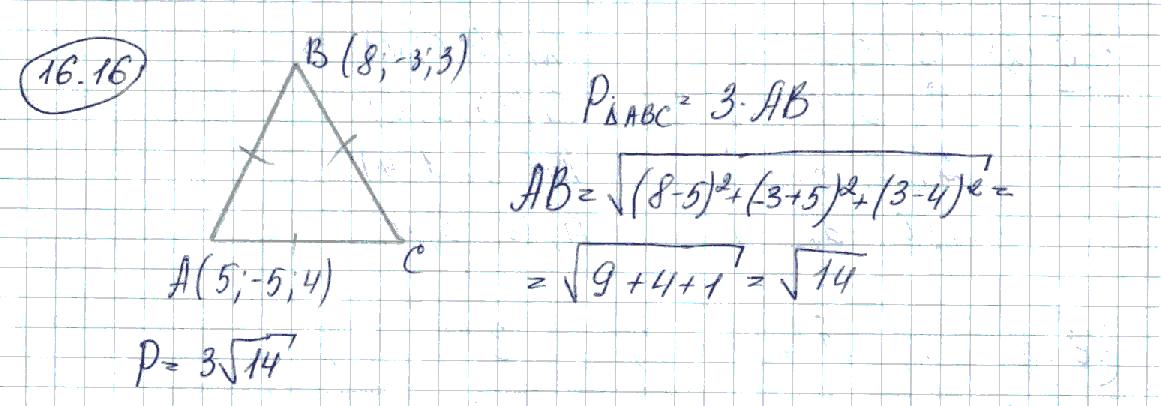 16.16
B (8; -3; 3)
A(5; -5; 4)
C
P△ABC = 3·AB
AB = √((8-5)²+(-3+5)²+(3-4)²) =
= √(9+4+1) = √14
P = 3√14